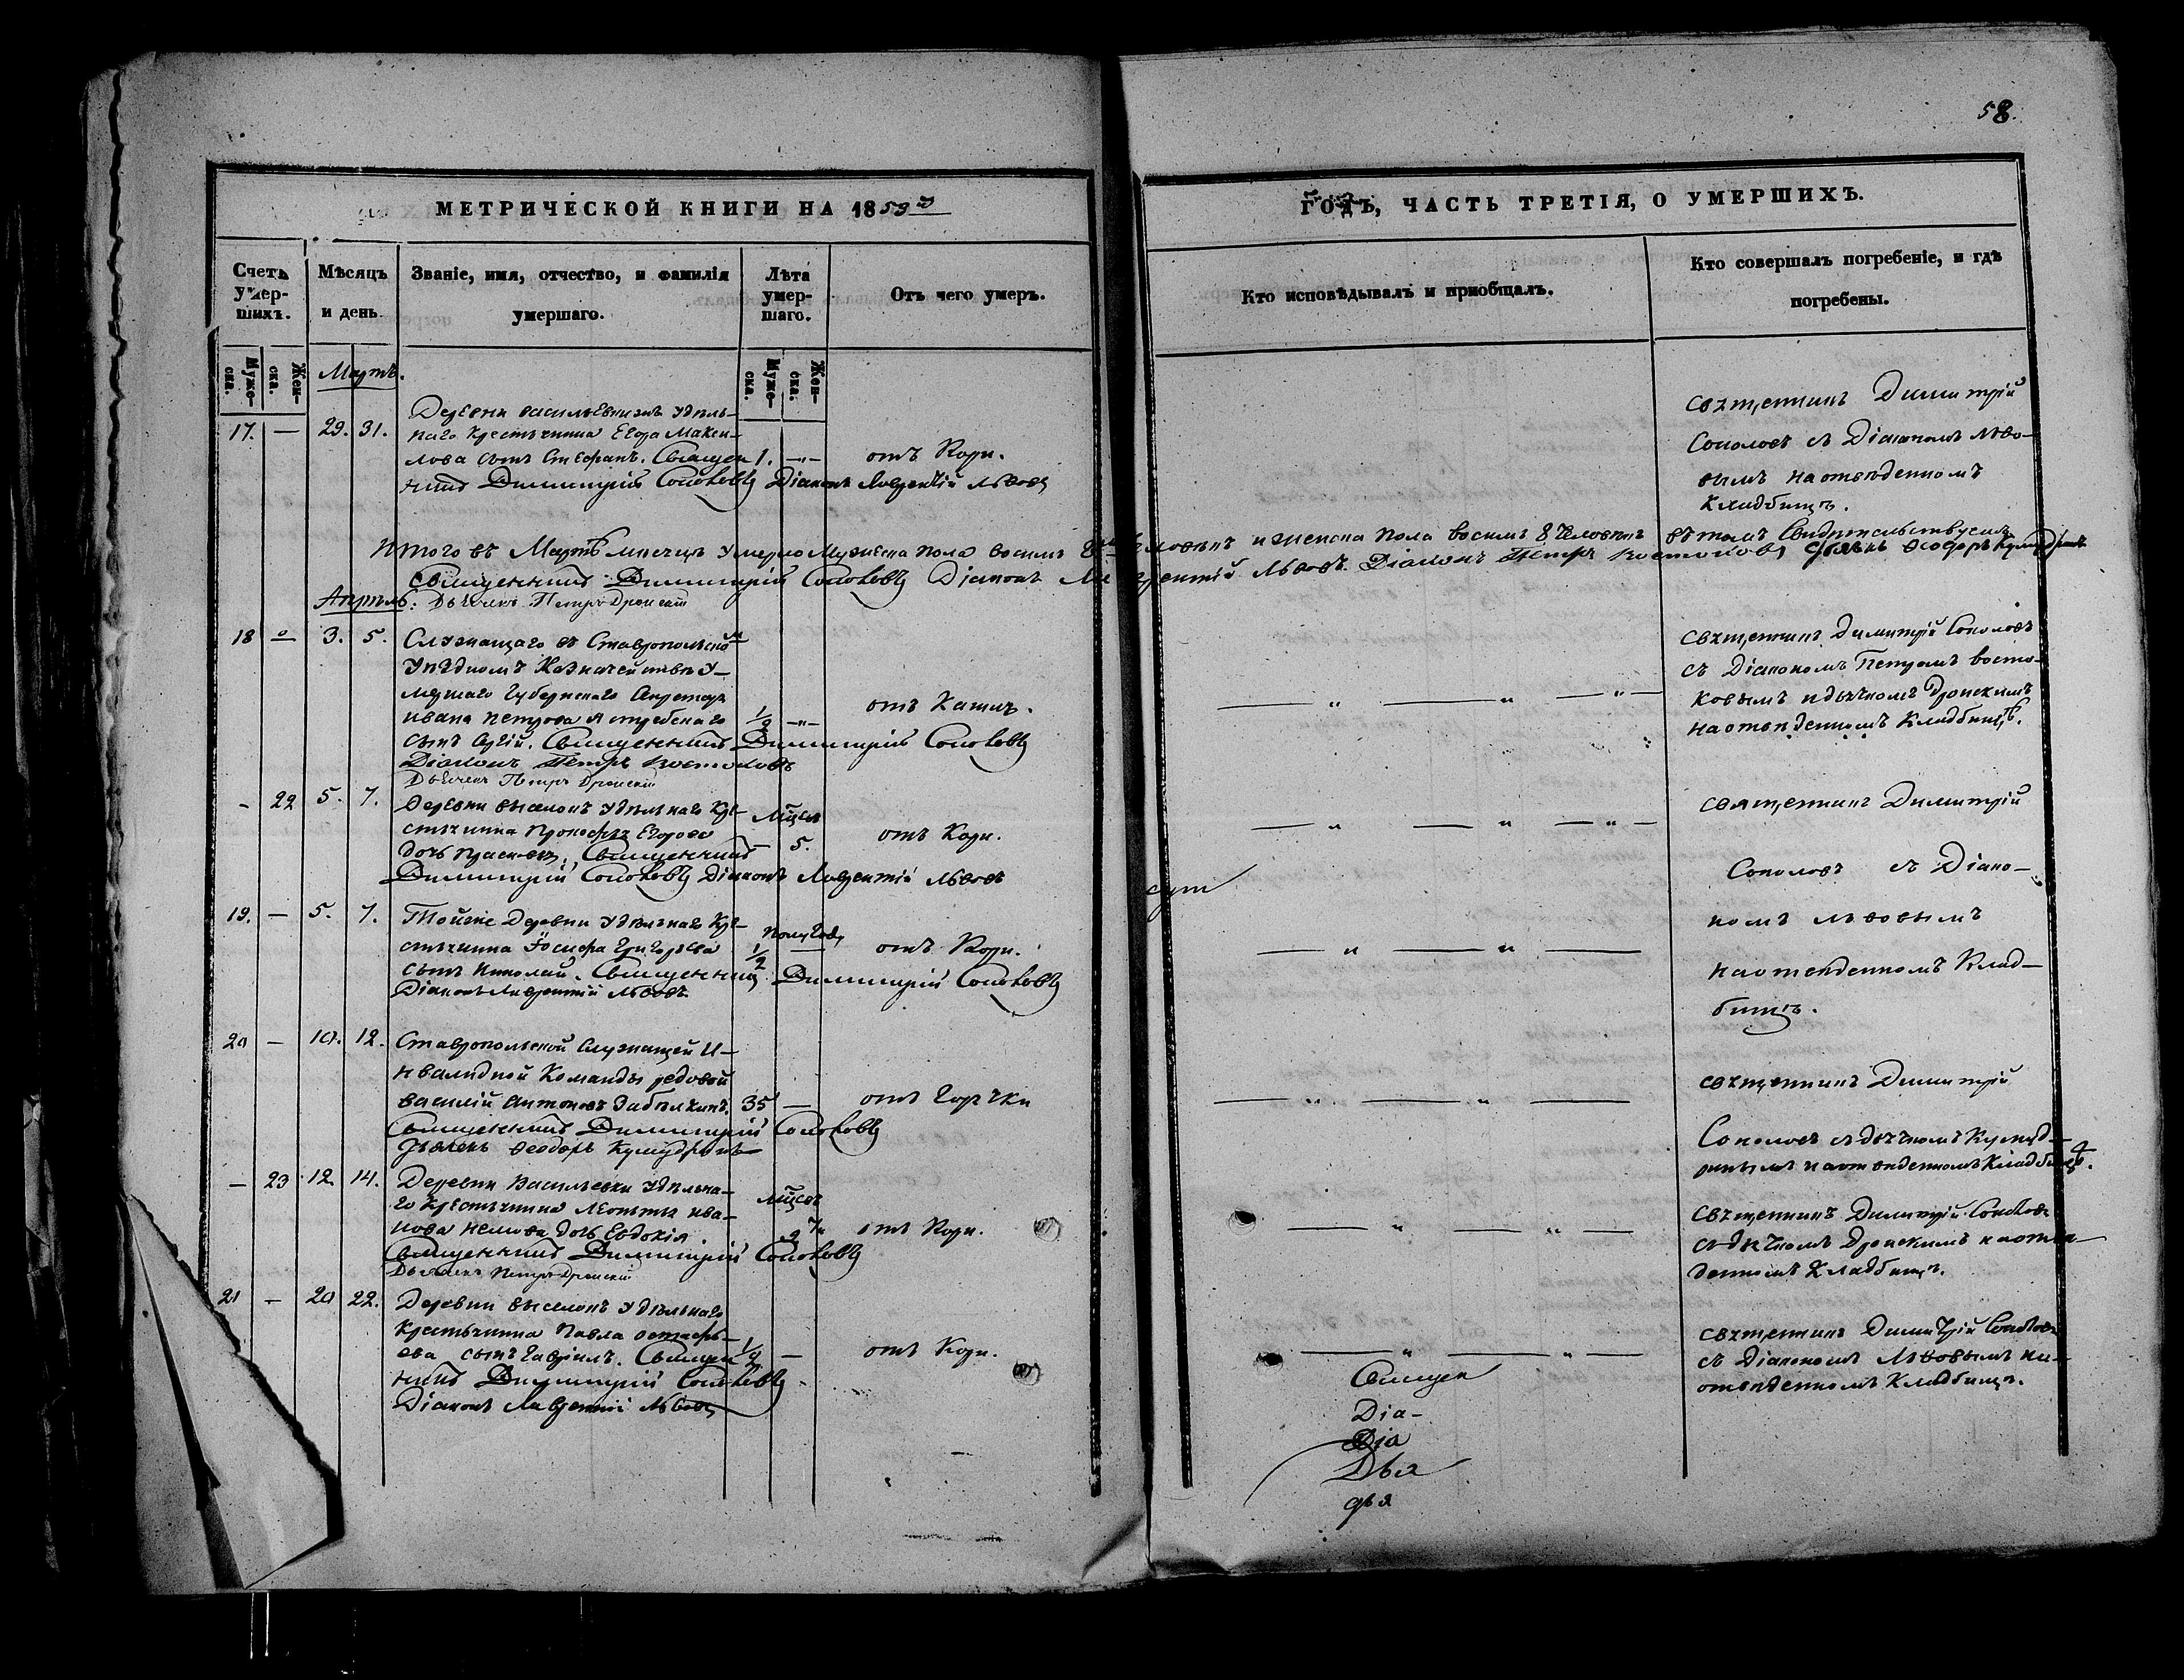 58.
МЕТРИЧЕСКОЙ КНИГИ НА 1859й
ГОДЪ, ЧАСТЬ ТРЕТІЯ, О УМЕРШИХЪ.
Счетъ умер-шихъ.
Мѣсяцъ и день.
Званіе, имя, отчество, и фамилія умершаго.
Лѣта умер-шаго.
Отъ чего умеръ.
Кто исповѣдывалъ и пріобщалъ.
Кто совершалъ погребеніе, и гдѣ погребены.
Муже-ска.
Жен-ска.
Муже-ска.
Жен-ска.
Мартъ.
17. — 29. 31.
Деревни Васильевки удѣль-
наго крестьянина Егора Макси-
мова сынъ Стефанъ. Священ 1. —„— отъ Кори.
никъ Димитрій Соколовъ Діаконъ Лаврентій Львовъ
священникъ Димитрій
Соколовъ съ Діакономъ Льво-
вымъ на отведенномъ
Кладбищѣ.
Итого въ Мартѣ мѣсяцѣ умерло Мужеска пола восемь 8 человѣкъ и женска пола восемь 8 человѣкъ въ томъ свидѣтельствуемъ
Священникъ Димитрій Соколовъ Діаконъ Лаврентій Львовъ. Діаконъ Петръ Востоковъ Дьячекъ Ѳеодоръ
Апрѣль: Дьячекъ Петръ Дронскій
18 — 3. 5.
Служащаго въ Ставропольском
Уѣздномъ Казначействѣ у-
мершаго Губернскаго Секретаря
Ивана Петрова Ястребскаго 1/2 —„— отъ Кашля.
сынъ Сергій. Священникъ Димитрій Соколовъ
Діаконъ Петръ Востоковъ
Дьячекъ Петръ Дронскій
священникъ Димитрій Соколовъ
съ Діакономъ Петромъ Восто-
ковымъ и дьячкомъ Дронскимъ
на отведенномъ Кладбищѣ.
— 22 5. 7.
Деревни Выселокъ удѣльнаго кре-
стьянина Прокофья Егорова
дочь Прасковья. Священникъ — 5. отъ Кори.
Мѣсяц
Димитрій Соколовъ Діаконъ Лаврентій Львовъ
священникъ Димитрій
Соколовъ съ Діако-
номъ Львовымъ
на отведенномъ Клад-
бищѣ.
19. — 5. 7.
Той же Деревни удѣльнаго кре-
стьянина Іосифа Григорьева 1/2 отъ Кори.
полугода
сынъ Николай. Священникъ Димитрій Соколовъ
Діаконъ Лаврентій Львовъ
20 — 10. 12.
Ставропольской служащей И-
нвалидной Команды редовой
Василій Антоновъ Забѣлкинъ. 35 — отъ Горячки
Священникъ Димитрій Соколовъ
Дьячекъ Ѳеодоръ
священникъ Димитрій
— 23 12. 14.
Деревни Васильевки удѣльна-
го крестьянина Леонтья Ива-
нова дочь Евдокія. отъ Кори.
Мѣсяц
Священникъ Димитрій Соколовъ
Дьячекъ Петръ Дронскій
священникъ Димитрій Соколовъ
съ дьячкомъ Дронскимъ на отве
денномъ Кладбищѣ.
21 — 20 22.
Деревни Выселокъ удѣльнаго
крестьянина Павла Остафь-
ева сынъ Гавріилъ. Священ 1/2 — отъ Кори.
никъ Димитрій Соколовъ
Діаконъ Лаврентій Львовъ
священникъ Димитрій Соколовъ
съ Діакономъ Львовымъ на
отведенномъ Кладбищѣ.
Священ
Діа-
Діа
Дья
дья